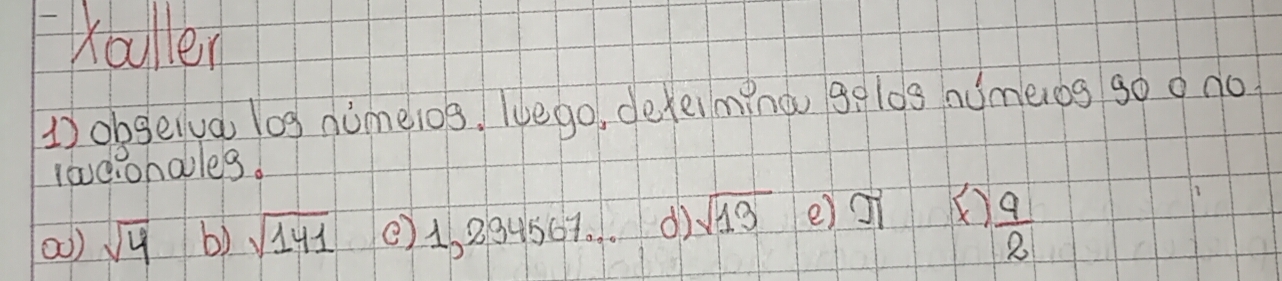 Xaller
1) observa los números. luego, determina si los números so o no
racionales.
a) √4 b) √141 c) 1,234567... d) √13 e) π f) 9/2